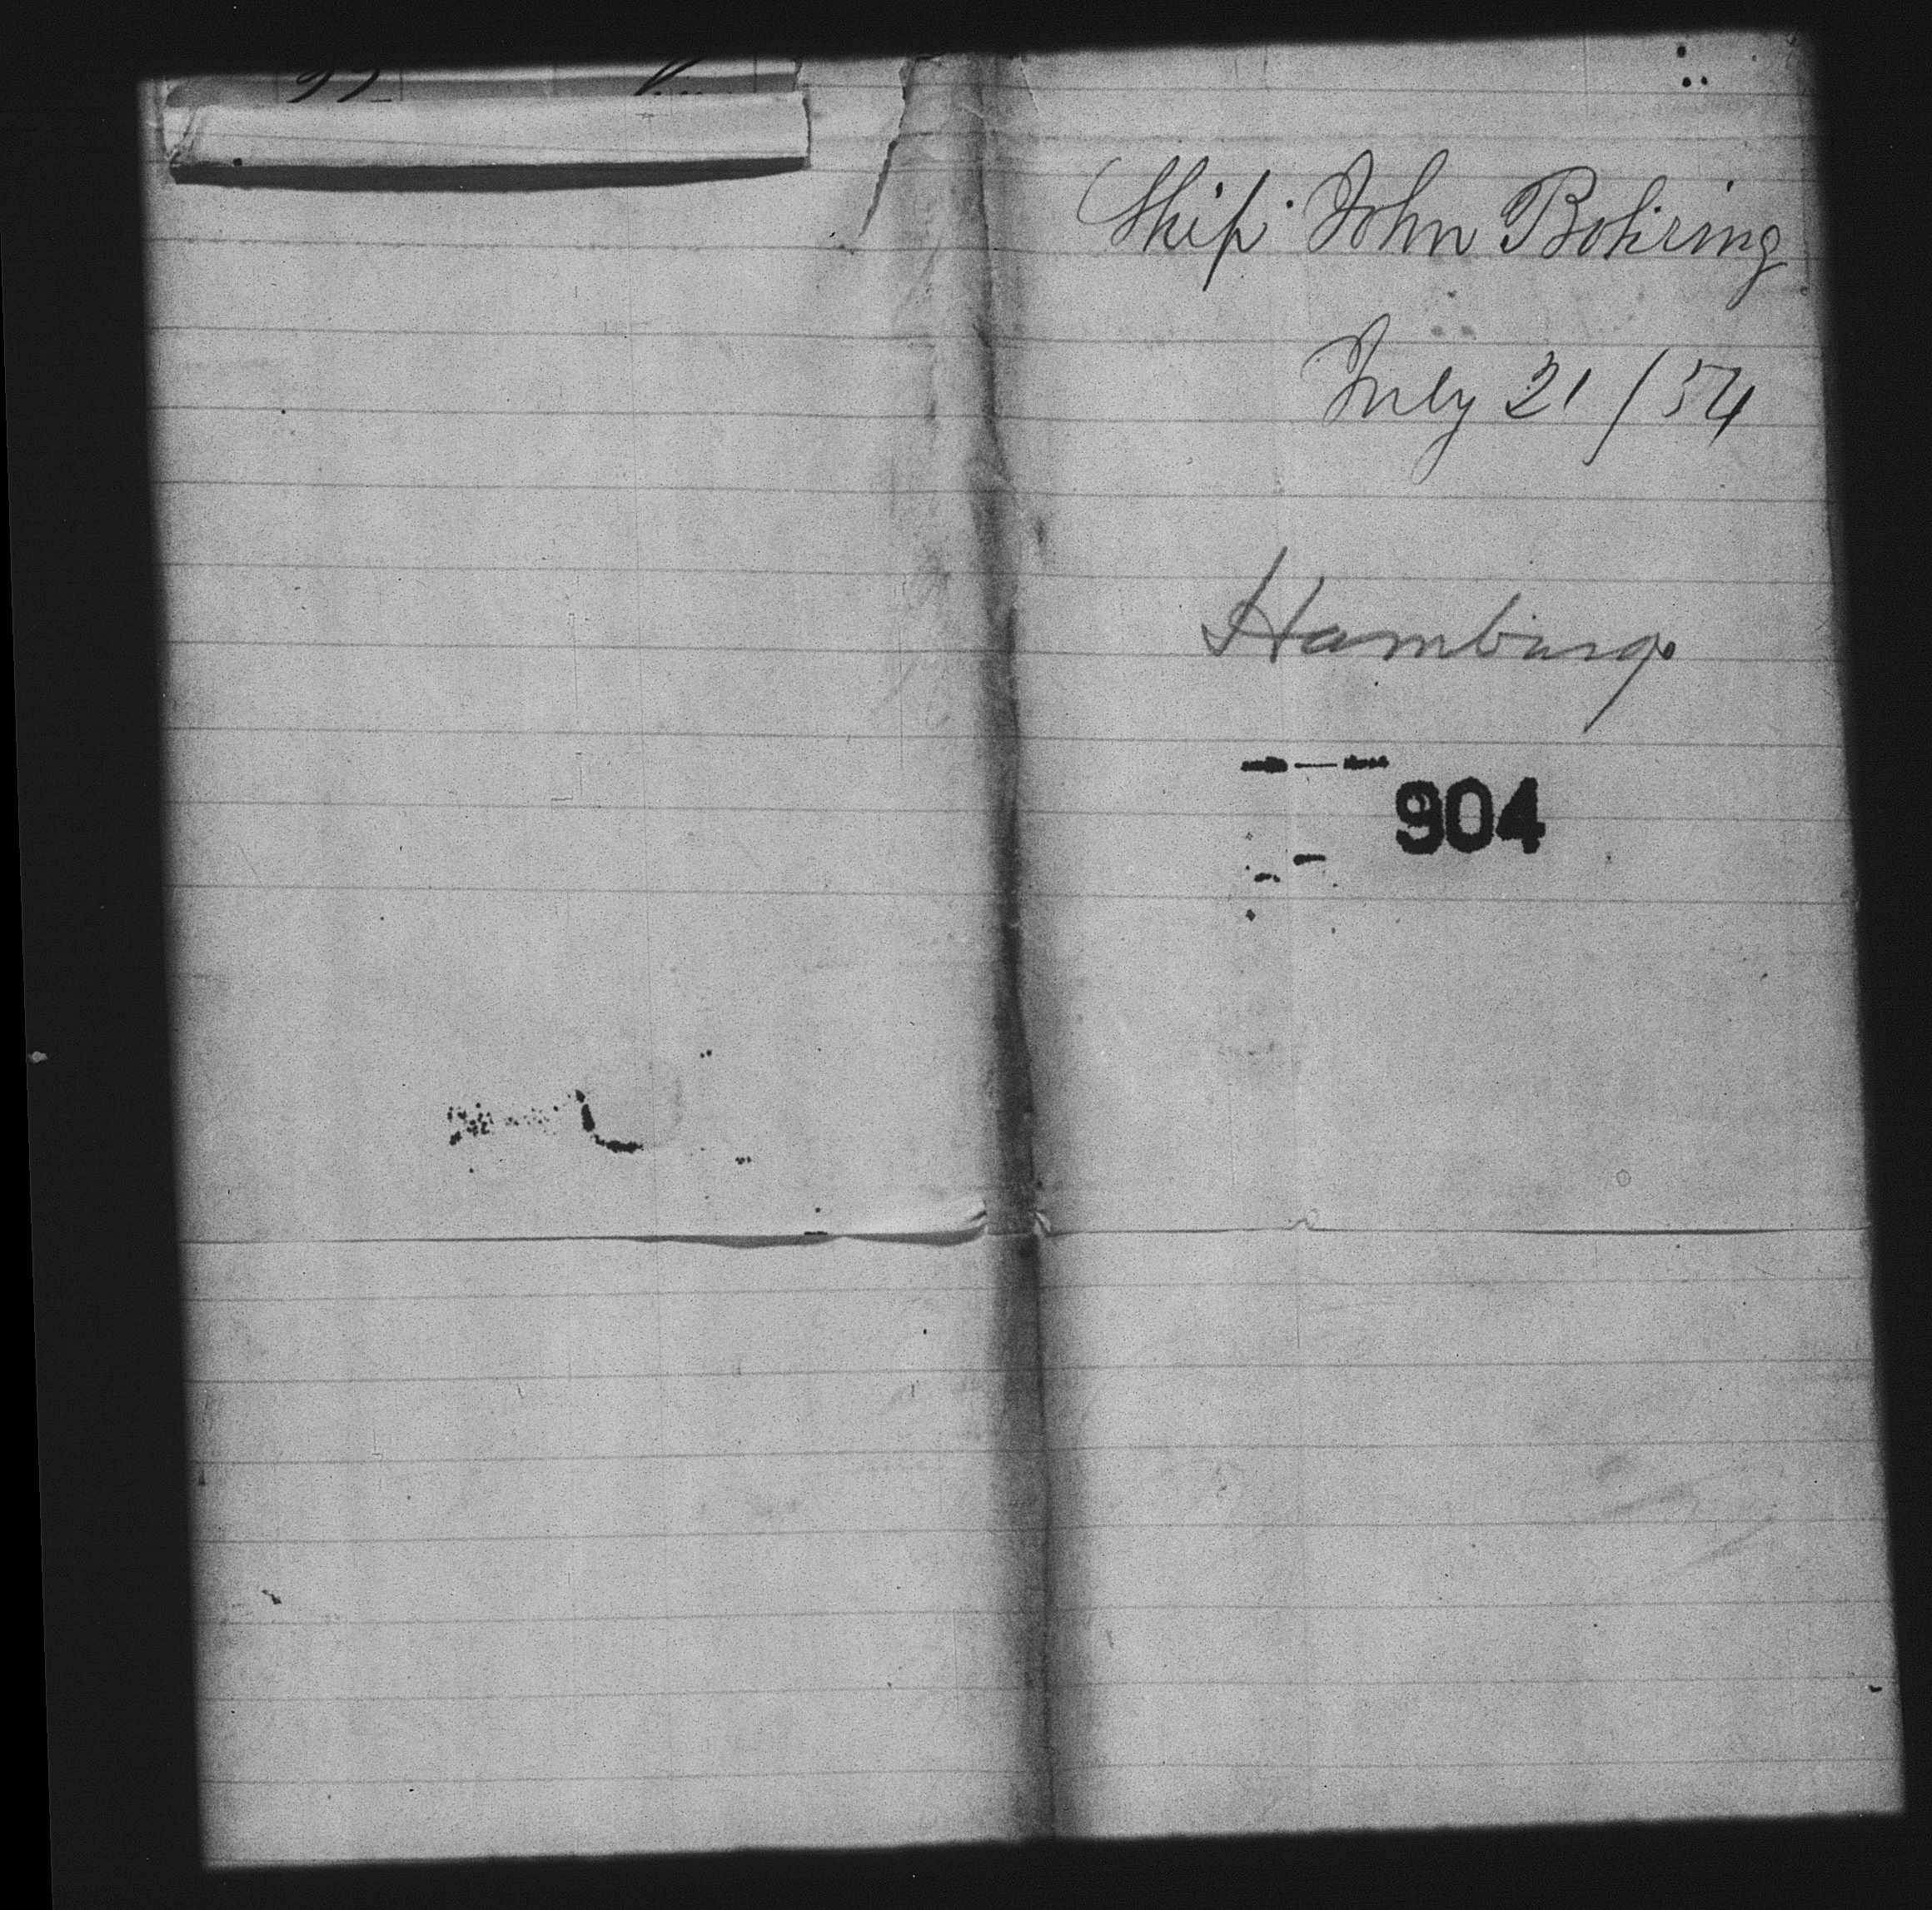 Ship John Bohring
July 21/54
Hamburg
904